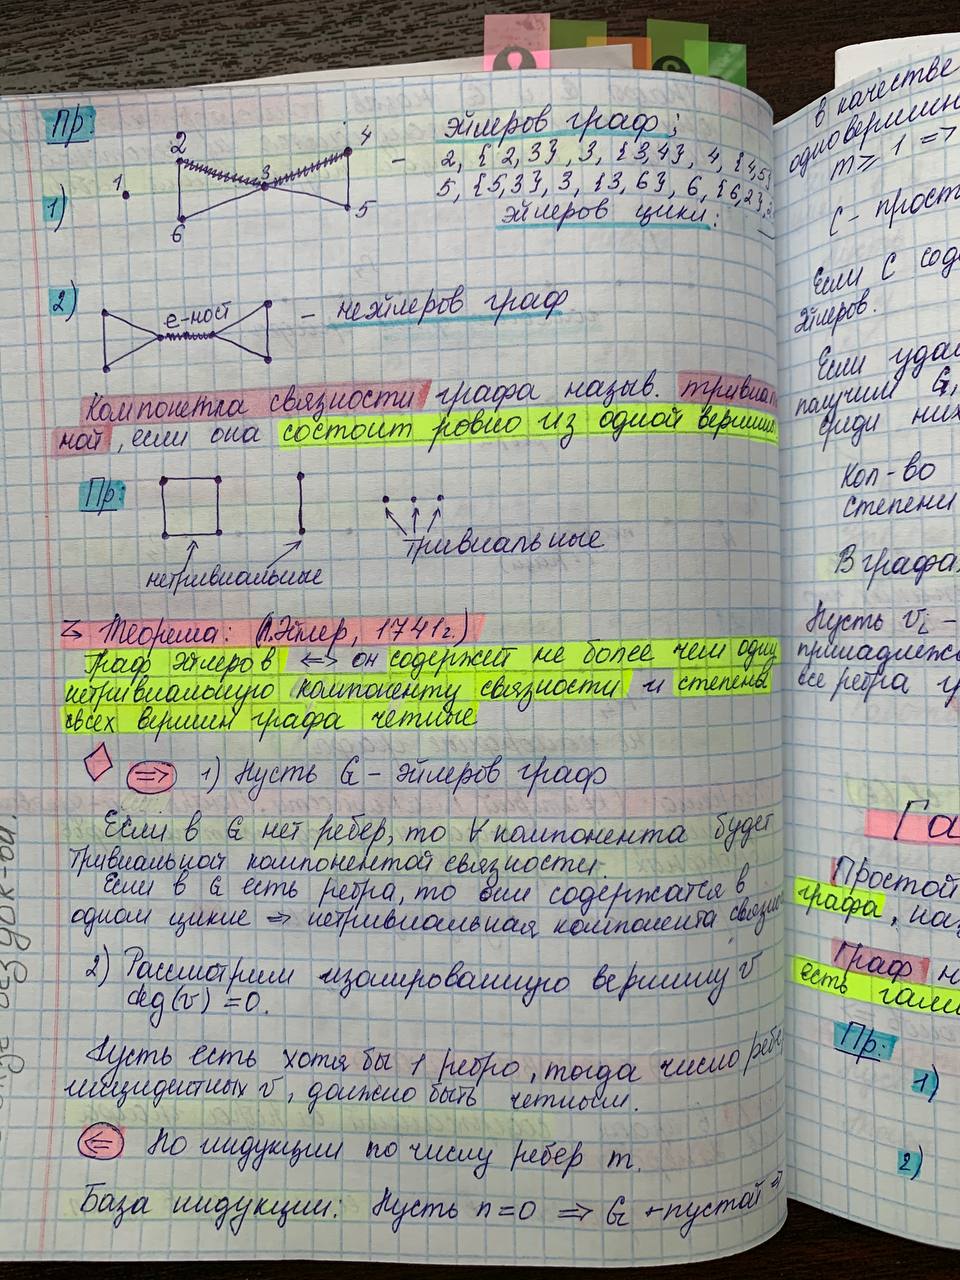 Пр:
1)
1
2
3
4
5
6
- Эйлеров граф;
2, {2,3}, 3, {3,4}, 4, {4,5}
5, {5,3}, 3, {3,6}, 6, {6,2},
Эйлеров цикл:
2)
e-мост
- неэйлеров граф
Компонетла связности графа назыв. тривиаль
ной, если она состоит ровно из одной вершины
Пр:
нетривиальные
тривиальные
Теорема: (Л.Эйлер, 1741г.)
Граф эйлеров <=> он содержит не более чем одну
нетривиальную компоненту связности и степени
всех вершин графа четные
=> 1) Пусть G - эйлеров граф
Если в G нет ребер, то ∀ компонента будет
тривиальной компонентой связности.
Если в G есть ребра, то они содержатся в
одном цикле => нетривиальная компонента связно
2) Рассмотрим изолированную вершину v
deg(v) = 0.
Пусть есть хотя бы 1 ребро, тогда число ребер
инцидентных v, должно быть четным.
<= По индукции по числу ребер m.
База индукции: Пусть n=0 => G - пустой =>
без док-ва.
в качестве
одновершин
m ≥ 1 =>
C - прост
Если C сод
эйлеров.
Если удал
получим G,
среди них
Кол-во
степени
В графа
Пусть v_i -
принадлеж
все ребра
Га
Простой
графа, наз
Граф н
есть гами
Пр:
1)
2)